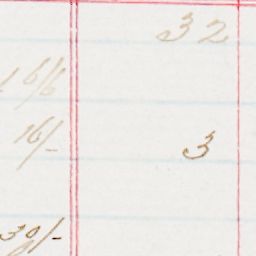 32
16/6
16/- 3
30/-